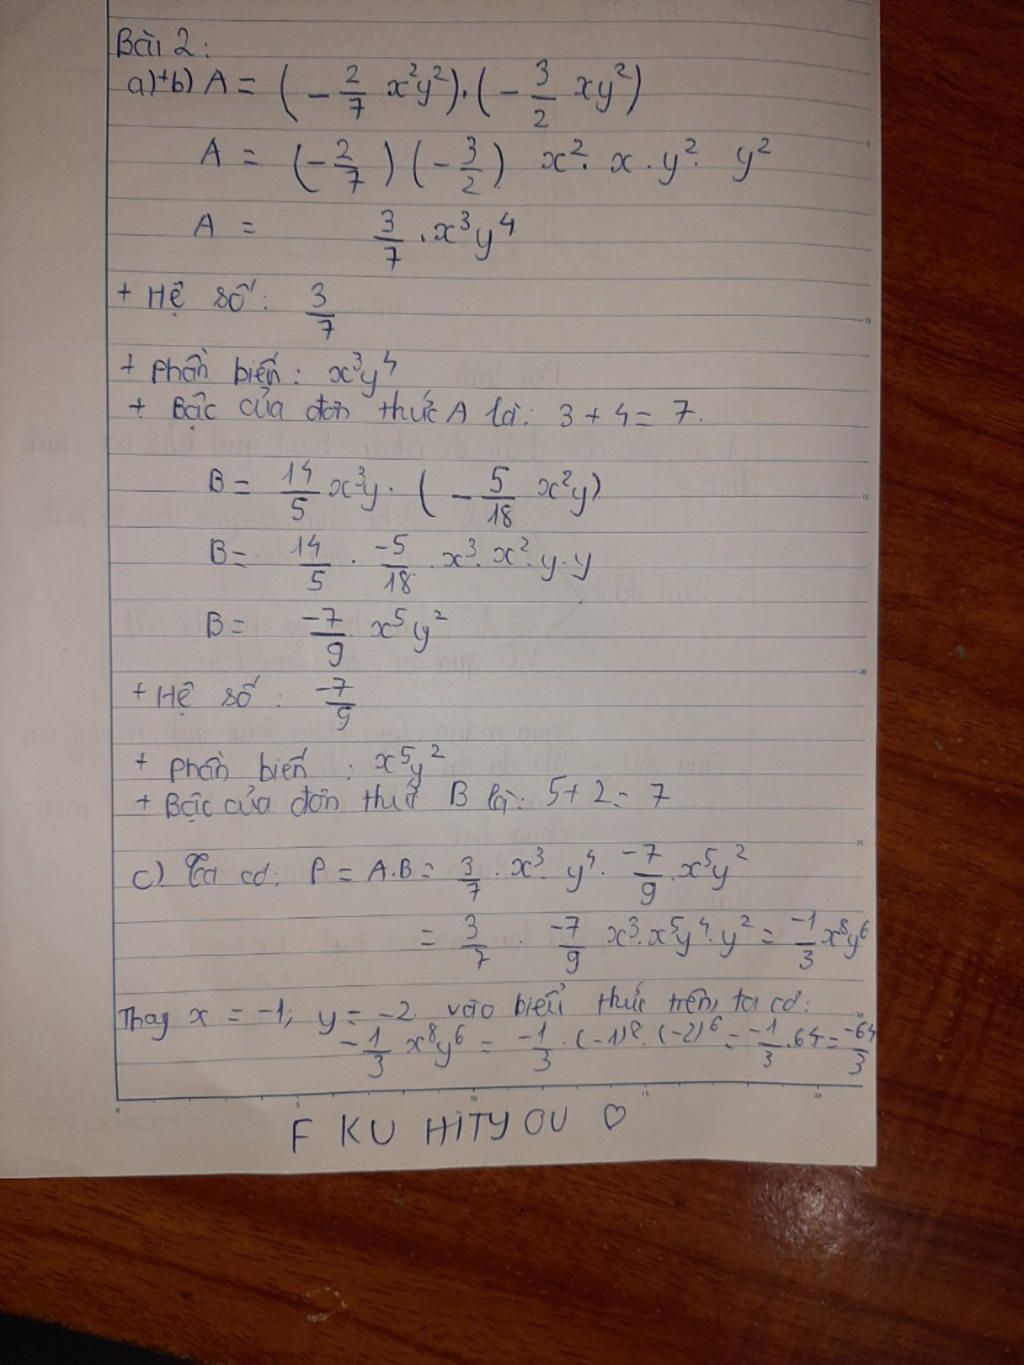 Bài 2:
a)+b) A = (-2/7 x²y²).(-3/2 xy²)
A = (-2/7)(-3/2) x². x . y². y²
A = 3/7 . x³y⁴
+ Hệ số: 3/7
+ phần biến: x³y⁴
+ Bậc của đơn thức A là: 3 + 4 = 7.
B = 14/5 x³y . (-5/18 x²y)
B = 14/5 . -5/18 x³. x². y . y
B = -7/9 x⁵y²
+ Hệ số : -7/9
+ phần biến : x⁵y²
+ Bậc của đơn thức B là: 5+ 2 = 7
c) Ta có: P = A.B = 3/7 . x³. y⁴. -7/9 . x⁵y²
= 3/7 . -7/9 x³. x⁵y⁴. y² = -1/3 x⁸y⁶
Thay x = -1; y = -2 vào biểu thức trên, ta có:
-1/3 x⁸y⁶ = -1/3 . (-1)⁸. (-2)⁶ = -1/3 . 64 = -64/3
0 5 10 15 20
F KU HITY OU ♡